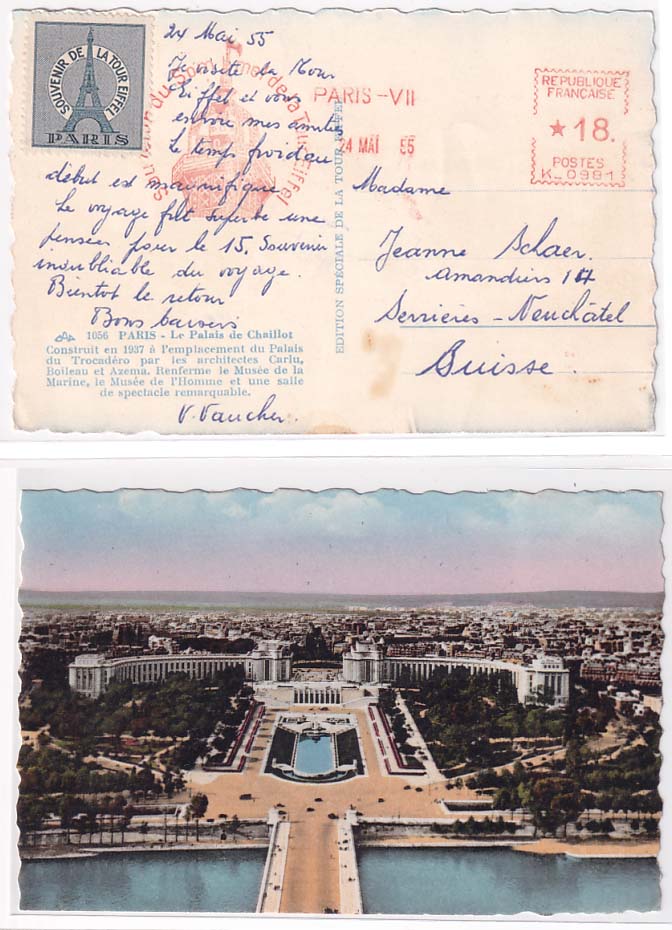 SOUVENIR DE LA TOUR EIFFEL
PARIS
24 Mai 55
Je visite la Tour
Eiffel et vous
envoie mes amitiés
Le temps froid au
début est magnifique
Le voyage fut superbe une
pensée pour le 15. Souvenir
inoubliable du voyage.
Bientot le retour
Bons baisers
V. Vaucher
1056 PARIS - Le Palais de Chaillot
Construit en 1937 à l'emplacement du Palais
du Trocadéro par les architectes Carlu,
Boileau et Azema. Renferme le Musée de la
Marine, le Musée de l'Homme et une salle
de spectacle remarquable.
Souvenir du Sommet de la Tour Eiffel
EDITION SPECIALE DE LA TOUR EIFFEL
PARIS-VII
24 MAI 55
REPUBLIQUE
FRANÇAISE
★ 18.
POSTES
K_0991
Madame
Jeanne Schaer
Amandiers 17
Serrières-Neuchâtel
Suisse.